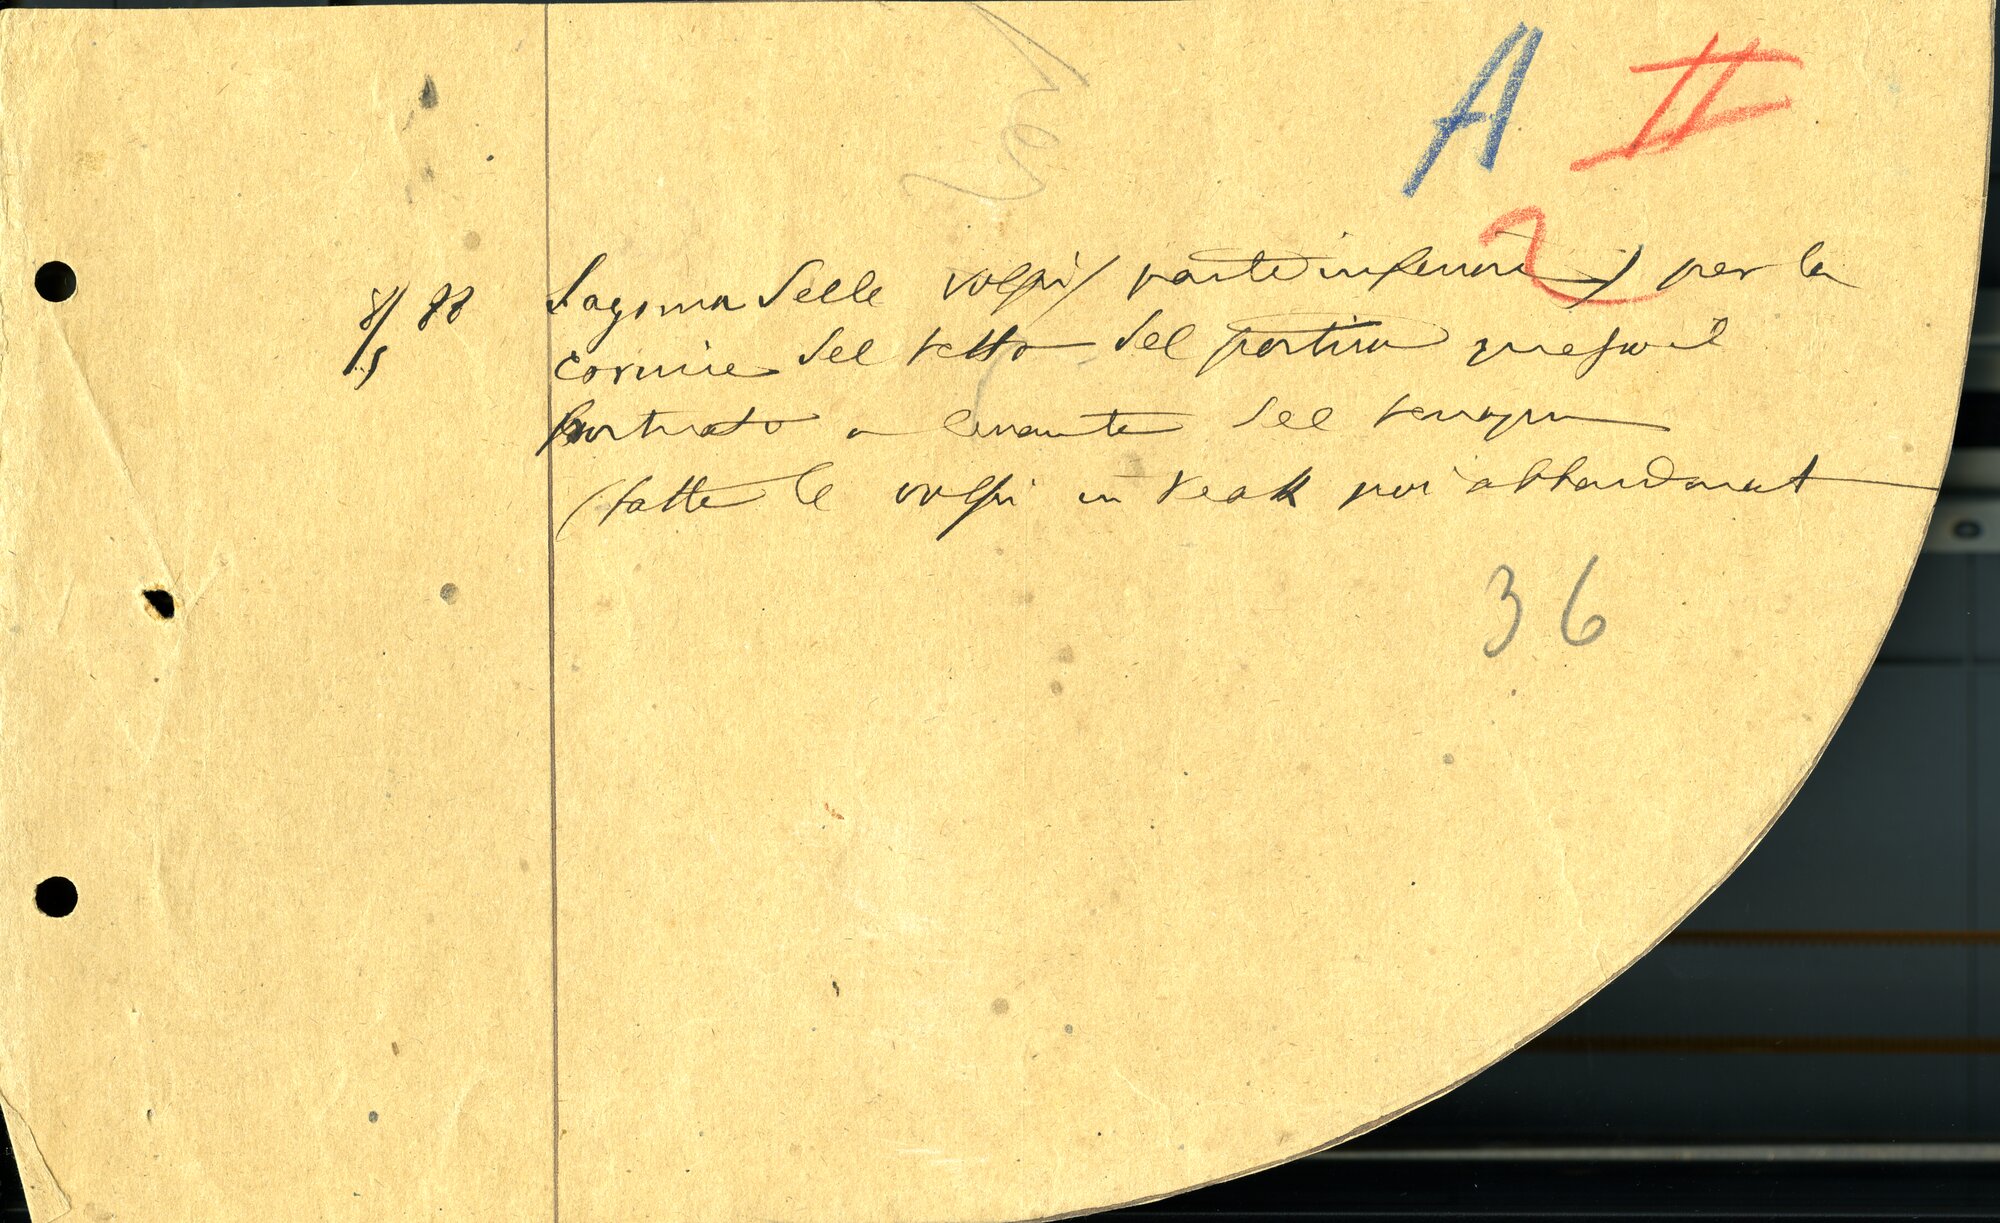 A II
2
8/5 88
Sagoma delle volpi (parte inferiore) per la
cornice del tetto del portico
a levante del tempio
(fatte le volpi in teak poi abbandonat
36